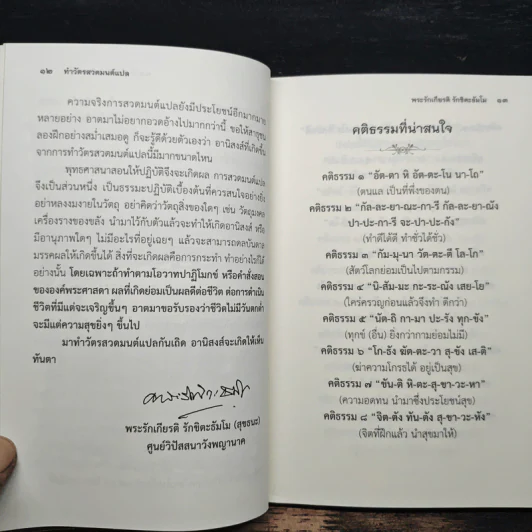 ๑๒ ทำวัตรสวดมนต์แปล
ความจริงการสวดมนต์แปลยังมีประโยชน์อีกมากมาย
หลายอย่าง อาตมาไม่อยากอวดอ้างไปมากกว่านี้ ขอให้สาธุชน
ลองฝึกอย่างสม่ำเสมอดู ก็จะรู้ด้วยตัวเองว่า อานิสงส์ที่เกิดขึ้น
จากการทำวัตรสวดมนต์แปลนี้มีมากขนาดไหน
พุทธศาสนาสอนให้ปฏิบัติจึงจะเกิดผล การสวดมนต์แปล
จึงเป็นส่วนหนึ่ง เป็นธรรมะปฏิบัติเบื้องต้นที่ควรสนใจอย่างยิ่ง
อย่าหลงงมงายในวัตถุ อย่าคิดว่าวัตถุสิ่งของใดๆ เช่น วัตถุมงคล
เครื่องรางของขลัง นำมาไว้กับตัวแล้วจะทำให้เกิดอานิสงส์ หรือ
มีอานุภาพใดๆ ไม่มีอะไรที่อยู่เฉยๆ แล้วจะสามารถดลบันดาล
มรรคผลให้เกิดขึ้นได้ สิ่งที่จะเกิดผลคือการกระทำ ทำอย่างไรได้
อย่างนั้น โดยเฉพาะถ้าทำตามโอวาทปาฏิโมกข์ หรือคำสั่งสอน
ขององค์พระศาสดา ผลที่เกิดย่อมเป็นผลดีต่อชีวิต ต่อการดำเนิน
ชีวิตที่มีแต่จะเจริญขึ้นๆ อาตมาขอรับรองว่าชีวิตไม่มีวันตกต่ำ
จะมีแต่ความสุขยิ่งๆ ขึ้นไป
มาทำวัตรสวดมนต์แปลกันเถิด อานิสงส์จะเกิดให้เห็น
ทันตา
พระรักเกียรติ รักขิตะธัมโม (สุขธนะ)
ศูนย์วิปัสสนาวังพญานาค
พระรักเกียรติ รักขิตะธัมโม ๑๓
คติธรรมที่น่าสนใจ
คติธรรม ๑ “อัต-ตา หิ อัต-ตะ-โน นา-โถ”
(ตนแล เป็นที่พึ่งของตน)
คติธรรม ๒ “กัล-ละ-ยา-ณะ-กา-รี กัล-ละ-ยา-ณัง
ปา-ปะ-กา-รี จะ-ปา-ปะ-กัง”
(ทำดีได้ดี ทำชั่วได้ชั่ว)
คติธรรม ๓ “กัม-มุ-นา วัต-ตะ-ตี โล-โก”
(สัตว์โลกย่อมเป็นไปตามกรรม)
คติธรรม ๔ “นิ-สัม-มะ กะ-ระ-ณัง เสย-โย”
(ใคร่ครวญก่อนแล้วจึงทำ ดีกว่า)
คติธรรม ๕ “นัต-ถิ กา-มา ปะ-รัง ทุก-ขัง”
(ทุกข์ (อื่น) ยิ่งกว่ากามย่อมไม่มี)
คติธรรม ๖ “โก-ธัง ฆัต-ตะ-วา สุ-ขัง เส-ติ”
(ฆ่าความโกรธได้ อยู่เป็นสุข)
คติธรรม ๗ “ขัน-ติ หิ-ตะ-สุ-ขา-วะ-หา”
(ความอดทน นำมาซึ่งประโยชน์สุข)
คติธรรม ๘ “จิต-ตัง ทัน-ตัง สุ-ขา-วะ-หัง”
(จิตที่ฝึกแล้ว นำสุขมาให้)